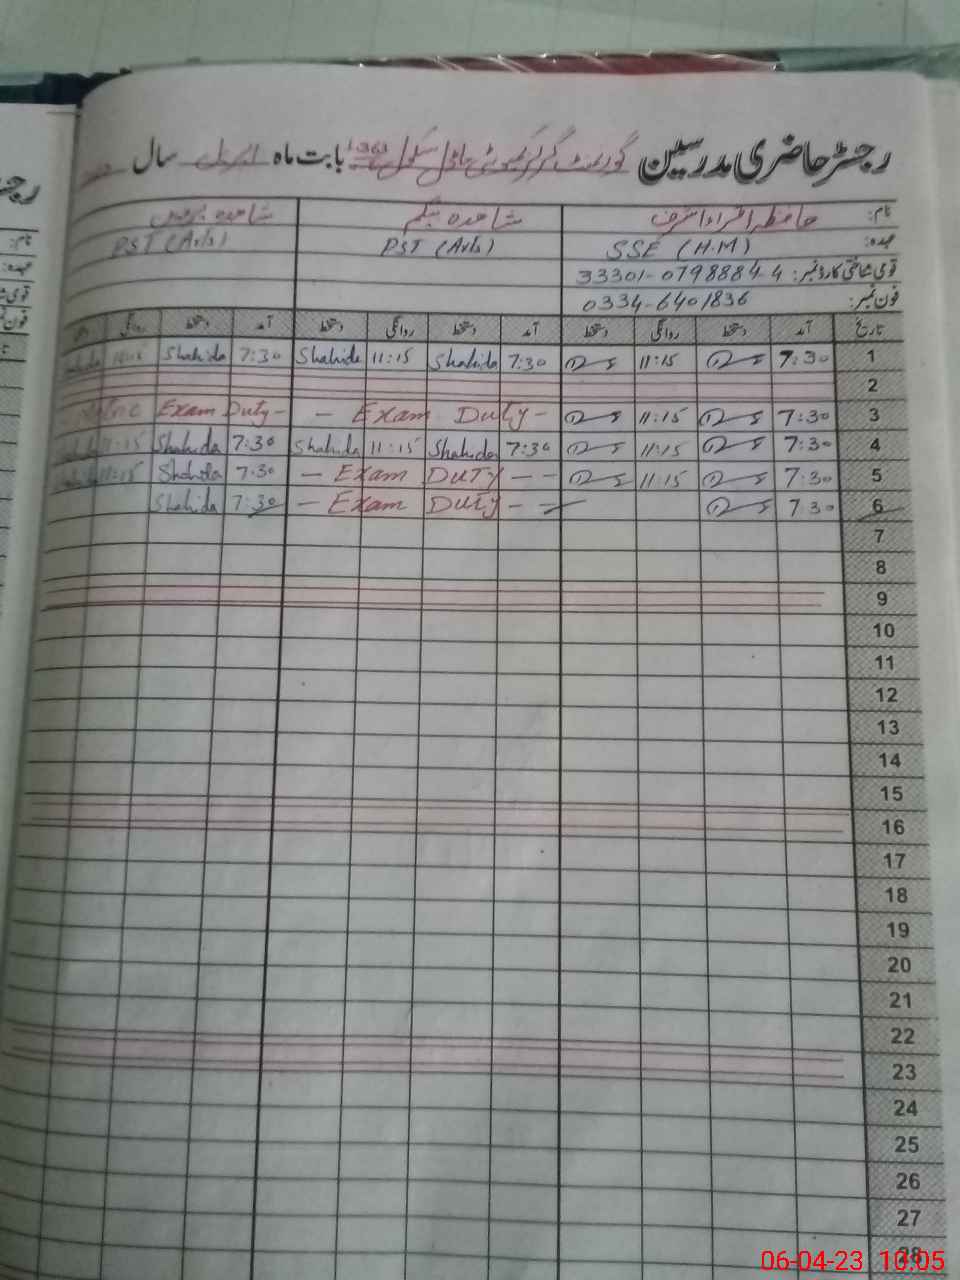 رجسٹر حاضری مدرسین گورنمنٹ گرلز کمیونٹی ماڈل سکول بابت ماہ اپریل سال
نام: حافظہ اقراء اشرف شاہدہ بیگم شاہدہ پروین
عہدہ: SSE (H.M) PST (Arts) PST (Arts)
قومی شناختی کارڈ نمبر: 33301-0798884-4
فون نمبر: 0334-6401836
تاریخ آمد دستخط روانگی دستخط آمد دستخط روانگی دستخط آمد دستخط روانگی
1 7:30 11:15 7:30 Shahida 11:15 Shahida 7:30 Shahida 11:15
2
3 7:30 11:15 - Exam Duty - Exam Duty -
4 7:30 11:15 7:30 Shahida 11:15 Shahida 7:30 Shahida 11:15
5 7:30 11:15 - Exam DUTY - - 7.30 Shahida 11:15
6 7:30 - Exam DUTY - - 7:30 Shahida
7
8
9
10
11
12
13
14
15
16
17
18
19
20
21
22
23
24
25
26
27
28
06-04-23 10:05